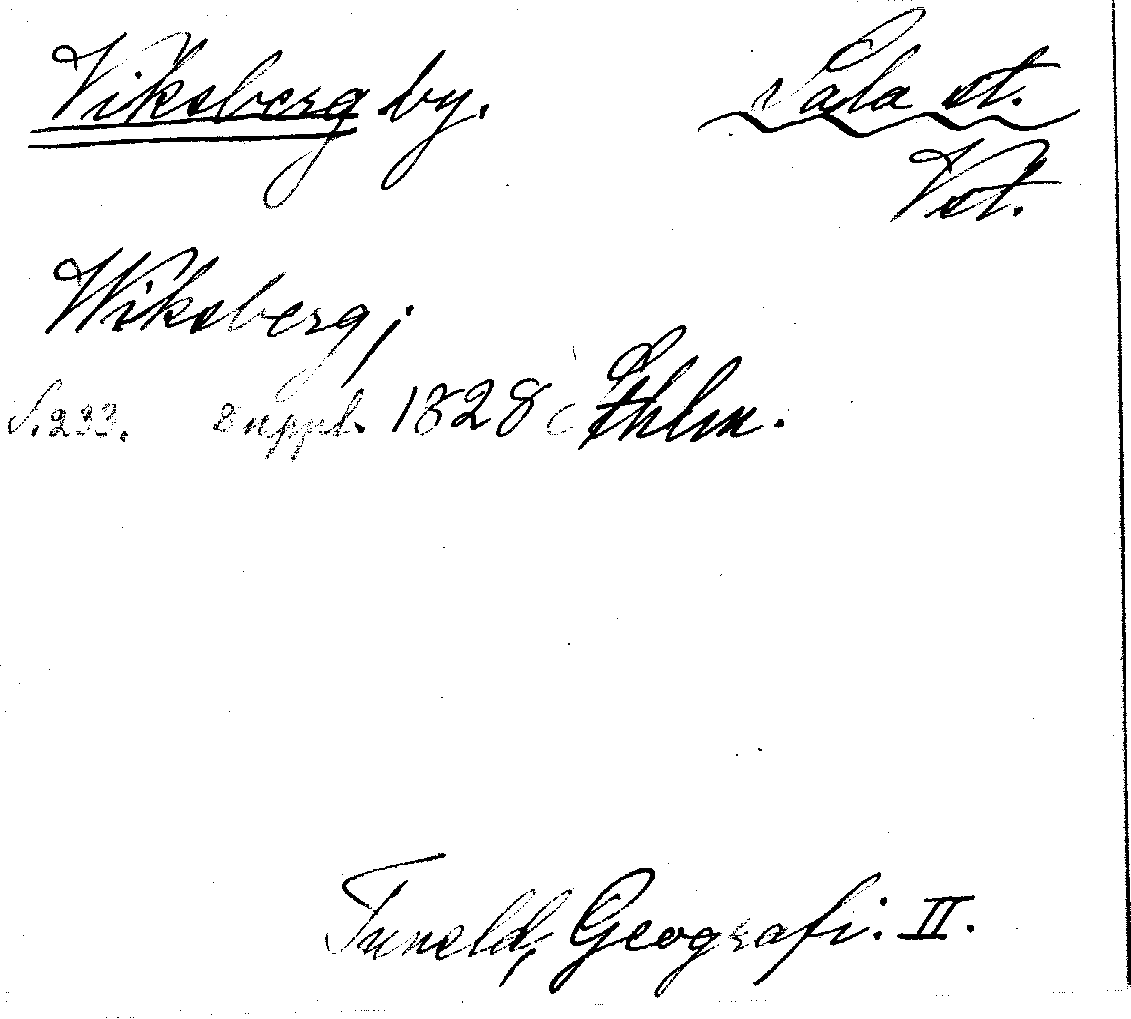 Viksberg by. Sala st.
Vst.
Wiksberg;
S. 233. suppl. 1828 Sthlm.
Tuneld, Geografi. II.